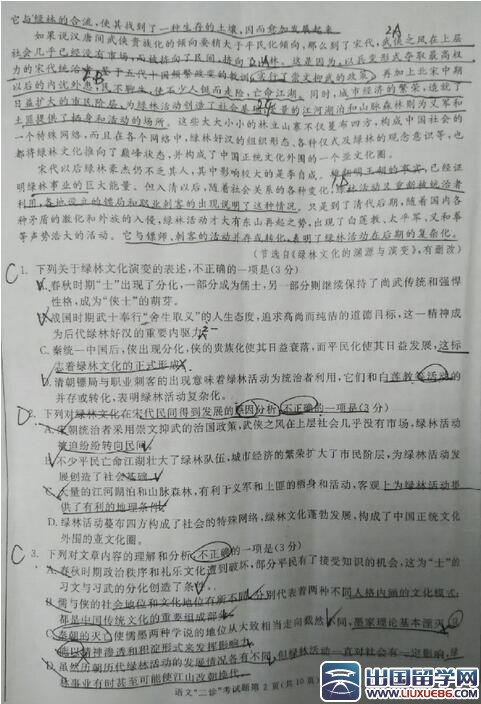 它与绿林的合流，使其找到了一种生存的土壤，因而愈加发展起来。
如果说汉唐间武侠贵族化的倾向要稍大于平民化倾向，那么到了宋代，武侠之风在上层
社会几乎已经没有市场，而被拐向了民间，拐向绿林。这是因为，以兵变形式夺取最高权
力的宋代统治者，鉴于五代十国频繁政变的教训，实行了崇文抑武的政策。再加上北宋中期
以后的内忧外患，民不聊生，使不少人铤而走险，亡命江湖。同时，城市经济的繁荣，造就了
日益扩大的市民阶层，为绿林活动创造了社会基础。大量的江河湖泊和山脉森林则为义军和
土匪提供了栖身和活动的场所。这些大大小小的林立山寨不仅蔓布四方，构成中国社会的
一个特殊网络，而且在各个网络中，绿林好汉的组织形态、各种仪式及绿林的观念意识等，也
都将绿林文化推向了巅峰状态，并构成了中国正统文化外围的一个亚文化圈。
宋代以后绿林豪杰仍不乏其人，其中影响较大的是李自成。 已经证
明绿林事业的巨大能量。但入清以后，随着社会关系的各种变化，绿林活动又重新被统治者
利用，各地设立的镖局和职业刺客的出现说明了这种情况。只是到了清代后期，随着国内各
种矛盾的激化和外族的入侵，绿林活动才大有东山再起之势，出现了白莲教、太平军、义和拳
等声势浩大的活动。它与镖师、刺客的活动并存或转化，表明了绿林活动在后期的复杂化。
（节选自《绿林文化的渊源与演变》，有删改）
1. 下列关于绿林文化演变的表述，不正确的一项是（3 分）
A. 春秋时期“士”出现了分化，一部分成为儒士，另一部则继续保持了尚武传统和强悍
性格，成为“侠士”的萌芽。
B. 战国时期武士奉行“舍生取义”的人生态度，追求高尚而纯洁的道德目标，这一精神成
为后代绿林好汉的重要内驱力。
C. 秦统一中国后，侠出现分化，侠的贵族化使其日益衰落，而平民化使其日益发展，这标
志着绿林文化的正式形成。
D. 清朝镖局与职业刺客的出现意味着绿林活动为统治者利用，它们和白莲教等活动的
并存或转化，表明绿林活动复杂化。
2. 下列对绿林文化在宋代民间得到发展的原因分析，不正确的一项是（3 分）
A. 宋朝统治者采用崇文抑武的治国政策，武侠之风在上层社会几乎没有市场，绿林活动
被迫纷纷转向民间。
B. 不少平民亡命江湖壮大了绿林队伍，城市经济的繁荣扩大了市民阶层，为绿林活动发
展创造了社会基础。
C. 大量的江河湖泊和山脉森林，有利于义军和土匪的栖身和活动，客观上为绿林活动提
供了有利的地理条件。
D. 绿林活动蔓布四方构成了社会的特殊网络，绿林文化蓬勃发展，构成了中国正统文化
外围的亚文化圈。
3. 下列对文章内容的理解和分析，不正确的一项是（3 分）
A. 春秋时期政治秩序和礼乐文化遭到破坏，部分平民有了接受知识的机会，这为“士”的
习文与习武的分化创造了条件。
B. 儒与侠的社会地位和文化地位有所不同，分别代表着两种不同人格内涵的文化模式，
都是中国传统文化的重要组成部分。
C. 秦朝的灭亡使儒墨两种学说的地位从大致相当走向截然不同，墨家理论基本湮灭，只
能以精神渗透和积淀形式来发挥影响力。
D. 虽然历朝历代绿林活动的发展情况各有不同，但绿林活动一直对社会有一定影响，绿
林事业有时甚至可能使江山改朝换代。
语文“二诊”考试题第 2 页（共 10 页）
出国留学网
www.liuxue86.com